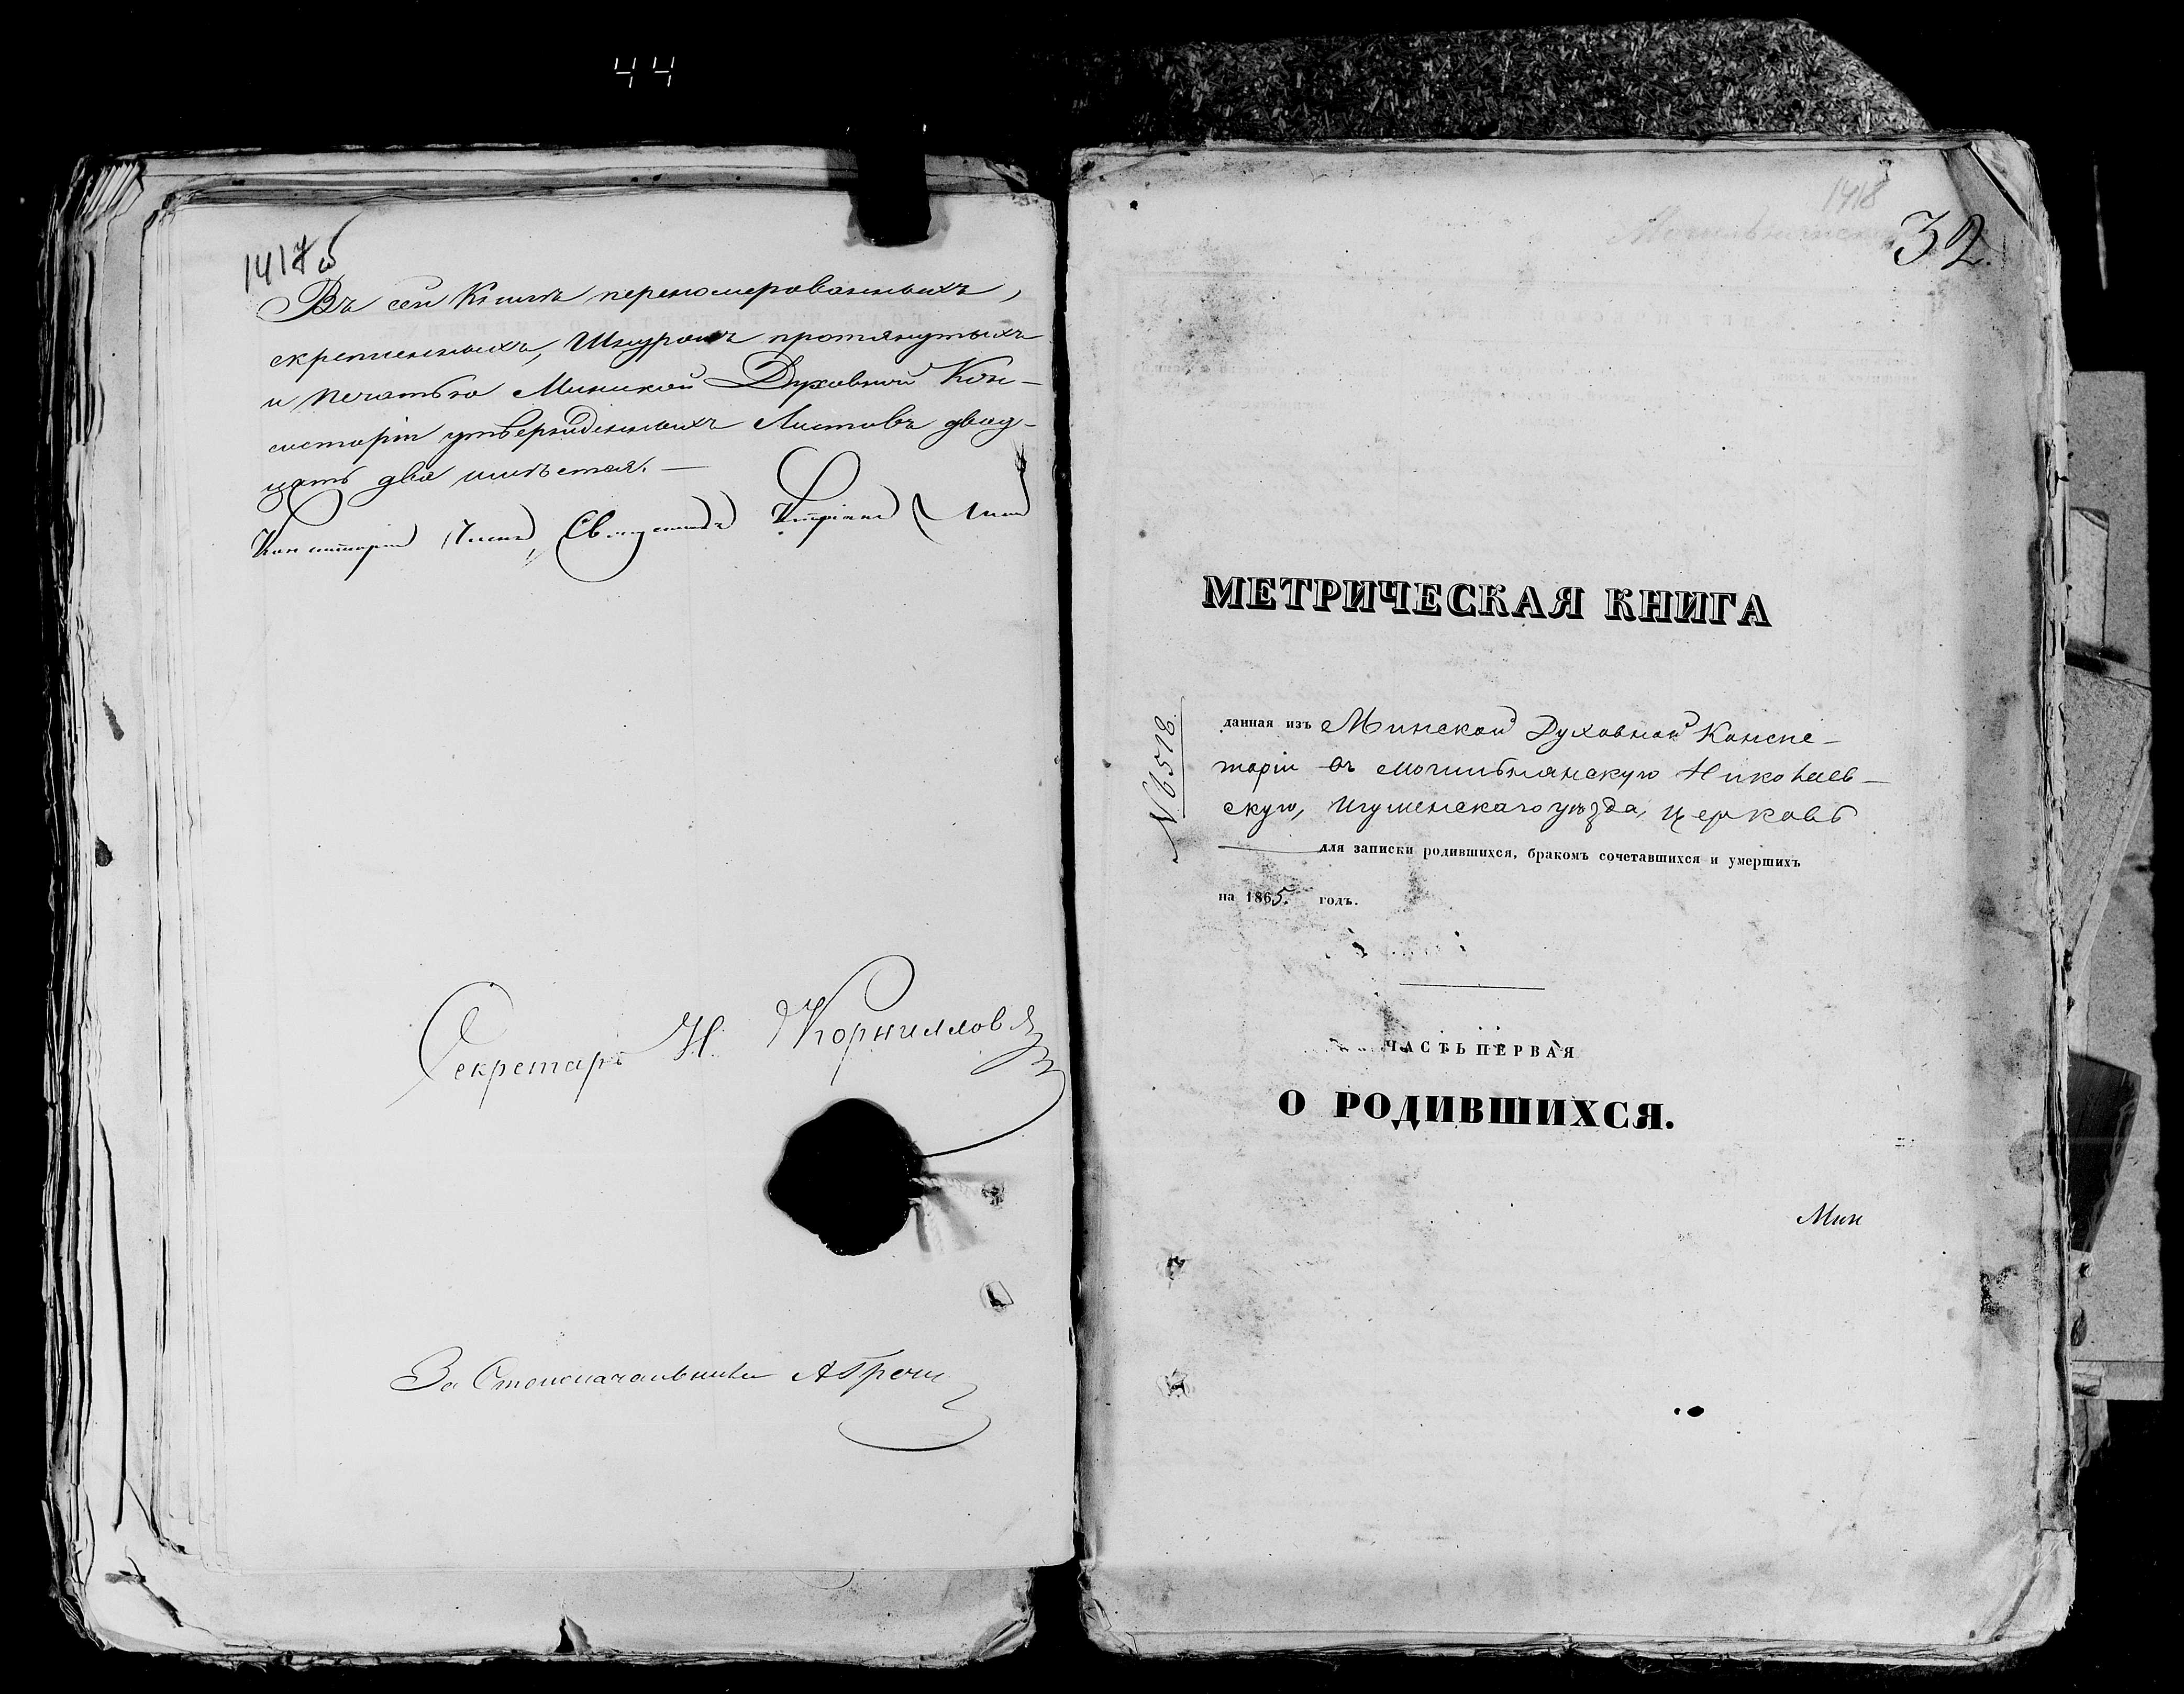 44
1417 об
Въ сей Книгѣ перенумерованныхъ,
скрепленныхъ, Шнуромъ протянутыхъ
и печатью Минской Духовной Кон-
систоріи утвержденныхъ Листовъ двад-
цать два
Консисторіи Членъ, Священникъ
Секретарь Н. Корниловъ
За Столоначальника А Гречи
1418
32.
МЕТРИЧЕСКАЯ КНИГА
№ 6518
данная изъ Минской Духовной Консис-
торіи въ Могильнянскую Николаев-
скую, Игуменскаго уѣзда, церковь
для записки родившихся, бракомъ сочетавшихся и умершихъ
на 1865. годъ.
ЧАСТЬ ПЕРВАЯ
О РОДИВШИХСЯ.
Мин